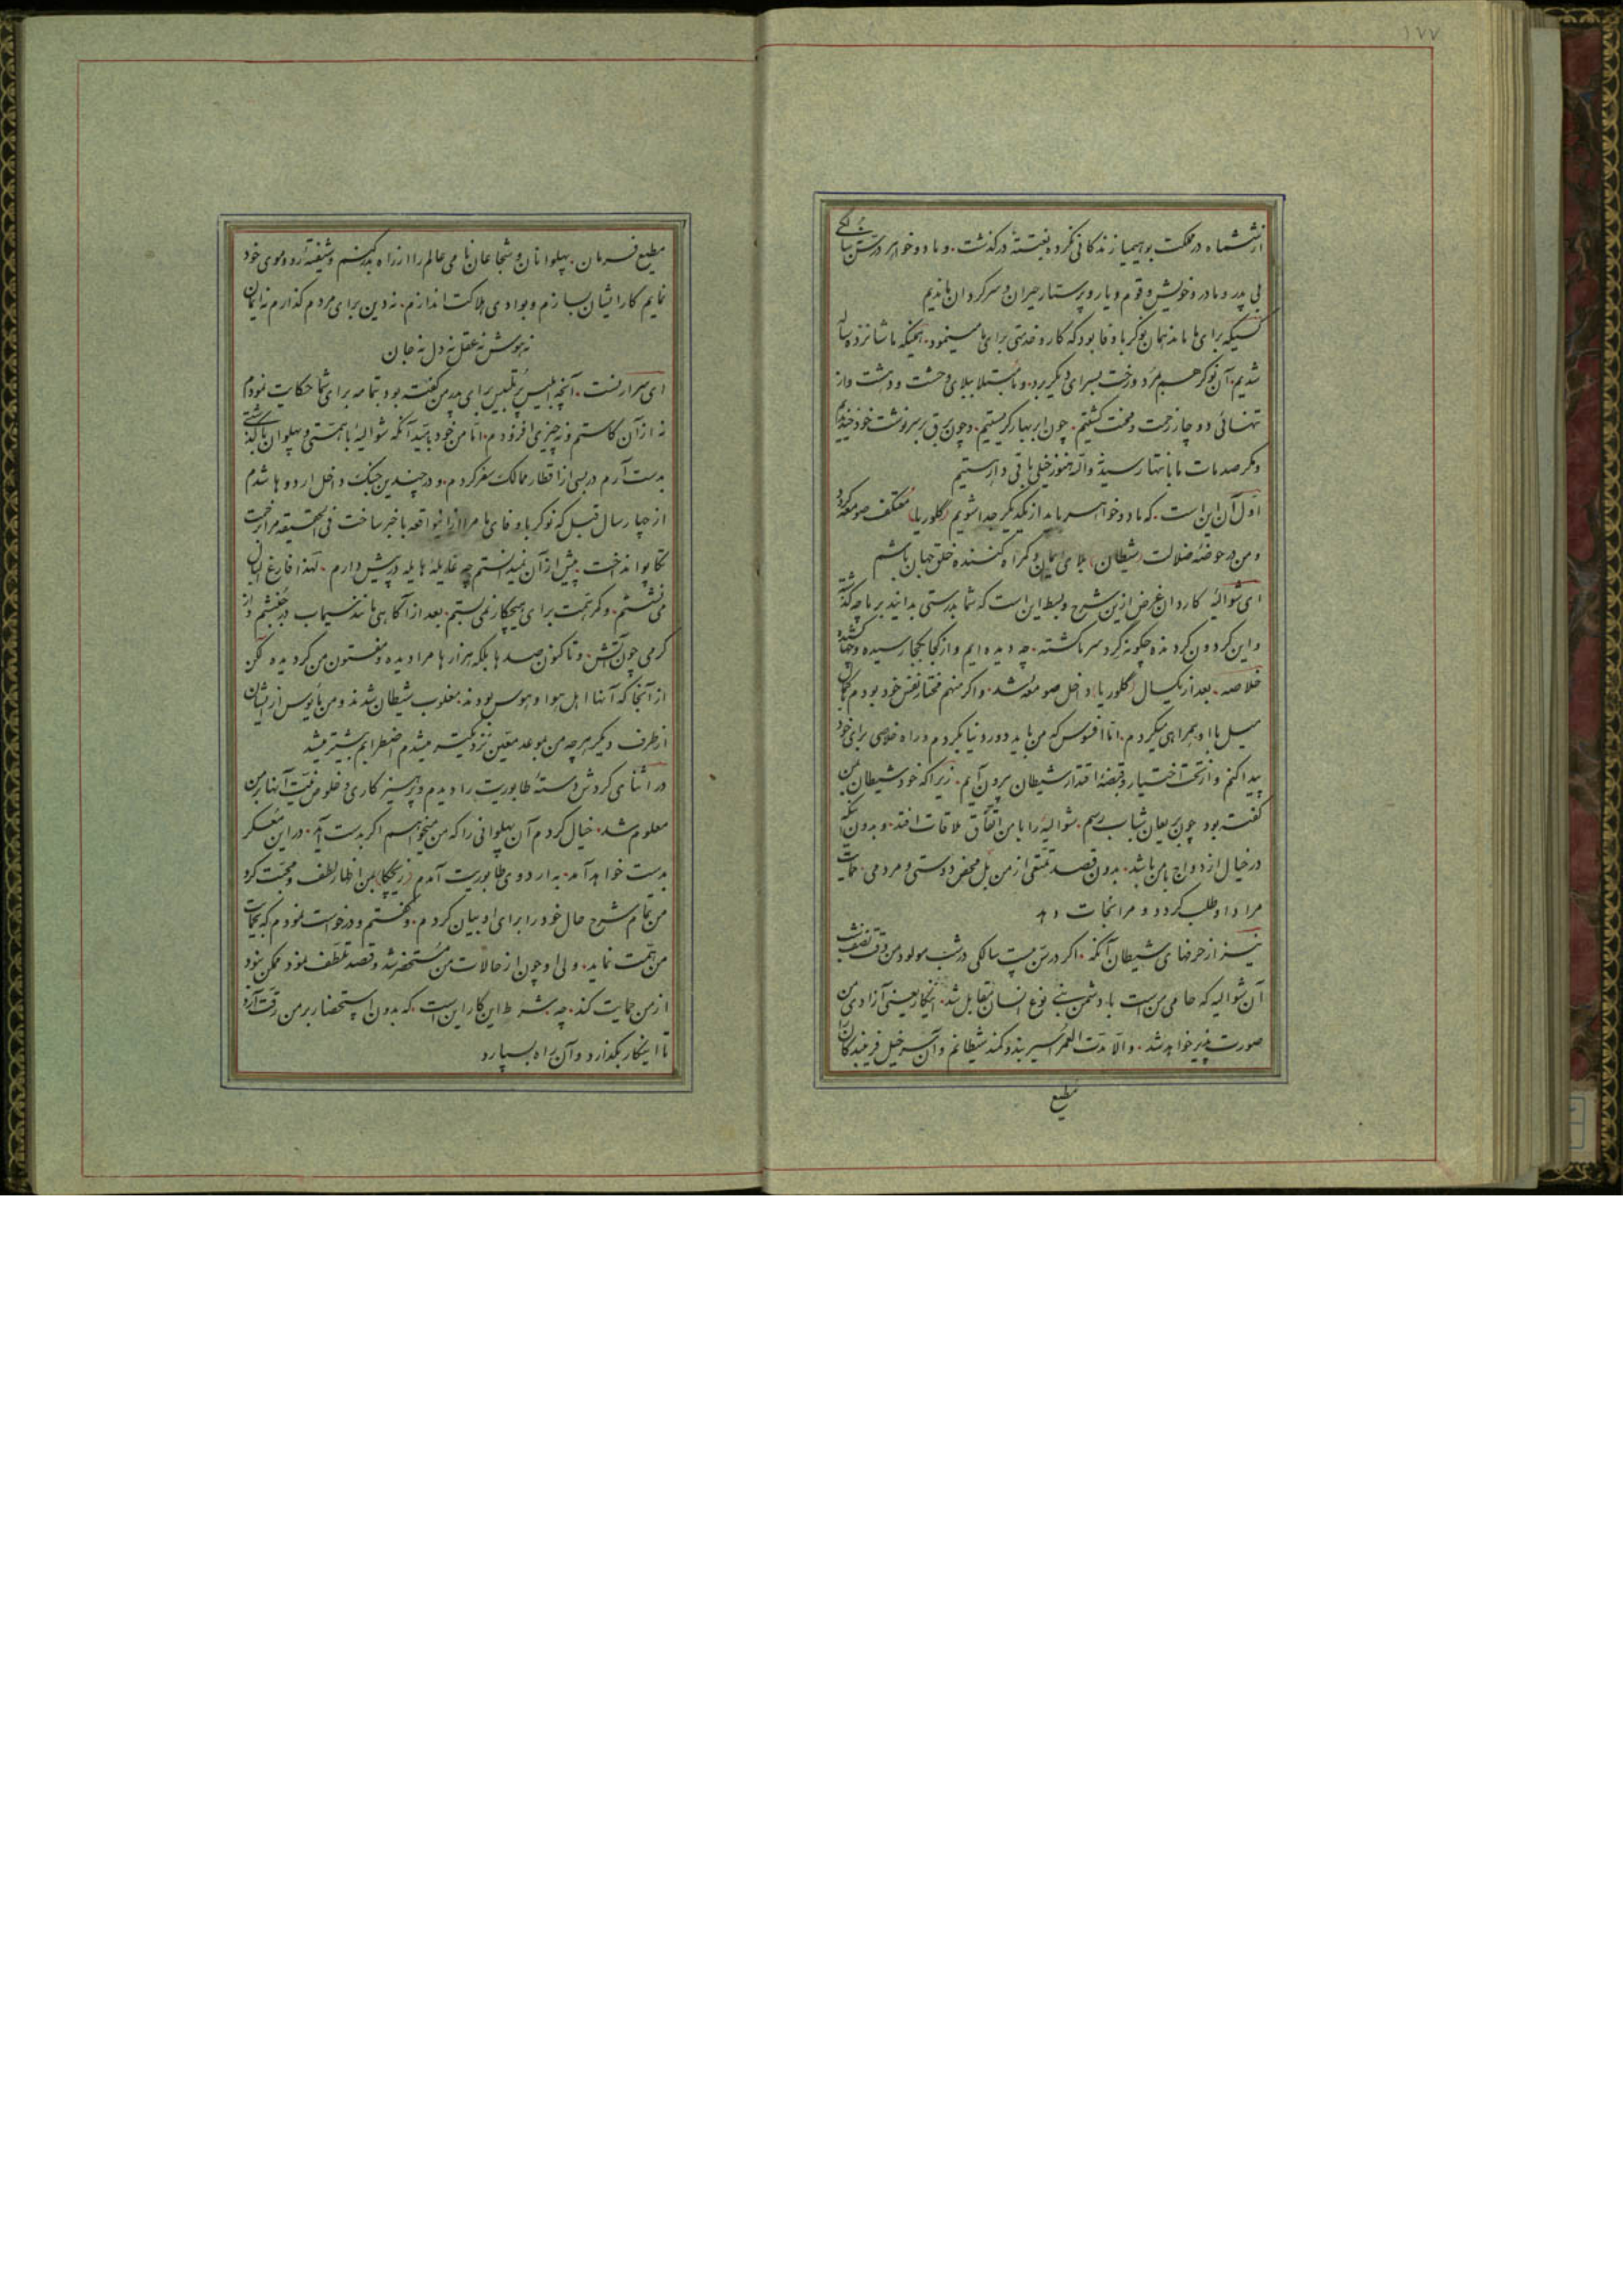 ۱۷۷
از ششماه در مملکت بوهیمیا زندگانی نکرده بغتةً درگذشت. و ما دو خواهر در سن پنج سالگی
بی پدر و مادر و خویش و قوم و یار و پرستار حیران و سرگردان ماندیم
کسیکه برای ما ماند همان نوکر باوفا بود که کار و خدمتی برای ما مینمود. همینکه ما شانزده ساله
شدیم. آن نوکر هم مرد و رخت بسرای دیگر برد. و ما مبتلا ببلای وحشت و دهشت و از
تنهائی دوچار زحمت و محنت گشتیم. چون ابر بهار گریستیم. و چون برق بر سرنوشت خود خندیدیم
و مگر صدمات ما بانتها رسید نه والله هنوز خیلی باقی داریم
اول آن این است. که ما دو خواهر باید از یکدیگر جدا شویم (گلوریا) معتکف صومعه گردد
و من در حوضهٔ ضلالت (شیطان) بلای ایمان و گمراه کننده خلق جهان باشم
ای شوالیه کاردان غرض ازین شرح و بسط این است که شما بدرستی بدانید بر ما چه گذشته
و این گردون گردنده چگونه گرد سر ما گشته. چه دیده ایم و از کجا بکجا رسیده و چها کشیده
خلاصه. بعد از یکسال (گلوریا) داخل صومعه شد. و اگر منهم مختار نفس خود بودم بکمال
میل با او همراهی میکردم. اما افسوس که من باید دور دنیا بگردم و راه خلاصی برای خود
پیدا کنم و از تحت اختیار و قبضهٔ اقتدار شیطان برون آیم. زیرا که خود شیطان بمن
گفته بود چون بریعان شباب رسم. شوالیهٔ را با من اتفاق ملاقات افتد. و بدون آنکه
در خیال ازدواج با من باشد. بدون قصد تمتعی از من بل محض دوستی و مردمی. حمایت
مرا داوطلب گردد و مرا نجات دهد
نیز از حرفهای شیطان آنکه. اگر در سن بیست سالگی در شب مولود من وقت نصف شب
آن شوالیه که حامی من است با دشمن بنی نوع انسان مقابل شد. اینکار یعنی آزادی من
صورت پذیر خواهد شد. و الا مدت العمر اسیر بند و کمند شیطانم و آن سر خیل فریبندگان را
مطیع
مطیع فرمان. پهلوانان و شجاعان نامی عالم را از راه بدر کنم و شیفتهٔ رو و موی خود
نمایم کار ایشان بسازم و بوادی هلاکت اندازم. نه دین برای مردم گذارم نه ایمان
نه هوش نه عقل نه دل نه جان
ای سر ارنست. آنچه ابلیس پرتلبیس برای پدر من گفته بود بتمامه برای شما حکایت نمودم
نه از آن کاستم و نه چیزی افزودم. اما من خود بامید آنکه شوالیهٔ با همتی و پهلوان با گذشتی
بدست آرم در بسی از اقطار ممالک سفر کردم. و در چندین جنگ داخل اردوها شدم
از چهار سال قبل که نوکر باوفای ما مرا ازین واقعه باخبر ساخت فی الحقیقه مرا بزحمت
تکاپو انداخت. پیش از آن نمیدانستم چه غایلهٔ هایله در پیش دارم. لهذا فارغ البال
می نشستم. و کمر همت برای هیچکار نمی بستم. بعد از آگاهی مانند سیماب در جنبشم و از
گرمی چون آتش. و تا کنون صدها بلکه هزارها مرا دیده و مفتون من گردیده لکن
از آنجا که آنها اهل هوا و هوس بودند. مغلوب شیطان شدند و من مأیوس از ایشان
از طرف دیگر هر چه من بموعد معین نزدیکتر میشدم اضطرابم بیشتر میشد
در اثنای گردش دستهٔ طابوریت را دیدم و پرهیزکاری و خلوص نیت آنها بر من
معلوم شد. خیال کردم آن پهلوانی را که من میخواهم اگر بدست آید. در این معسکر
بدست خواهد آمد. به اردوی طابوریت آمدم (زیچکا) بمن اظهار لطف و محبت کرد
من تمام شرح حال خود را برای او بیان کردم. و گفتم و درخواست نمودم که بنجات
من همت نماید. ولی او چون از حالات من مستحضر شد و قصد تلطف نمود ممکن نبود
از من حمایت کند. چه شرط این کار این است. که بدون استحضار بر من رقت آرد
تا اینکار بگذارد و آن راه بسپارد